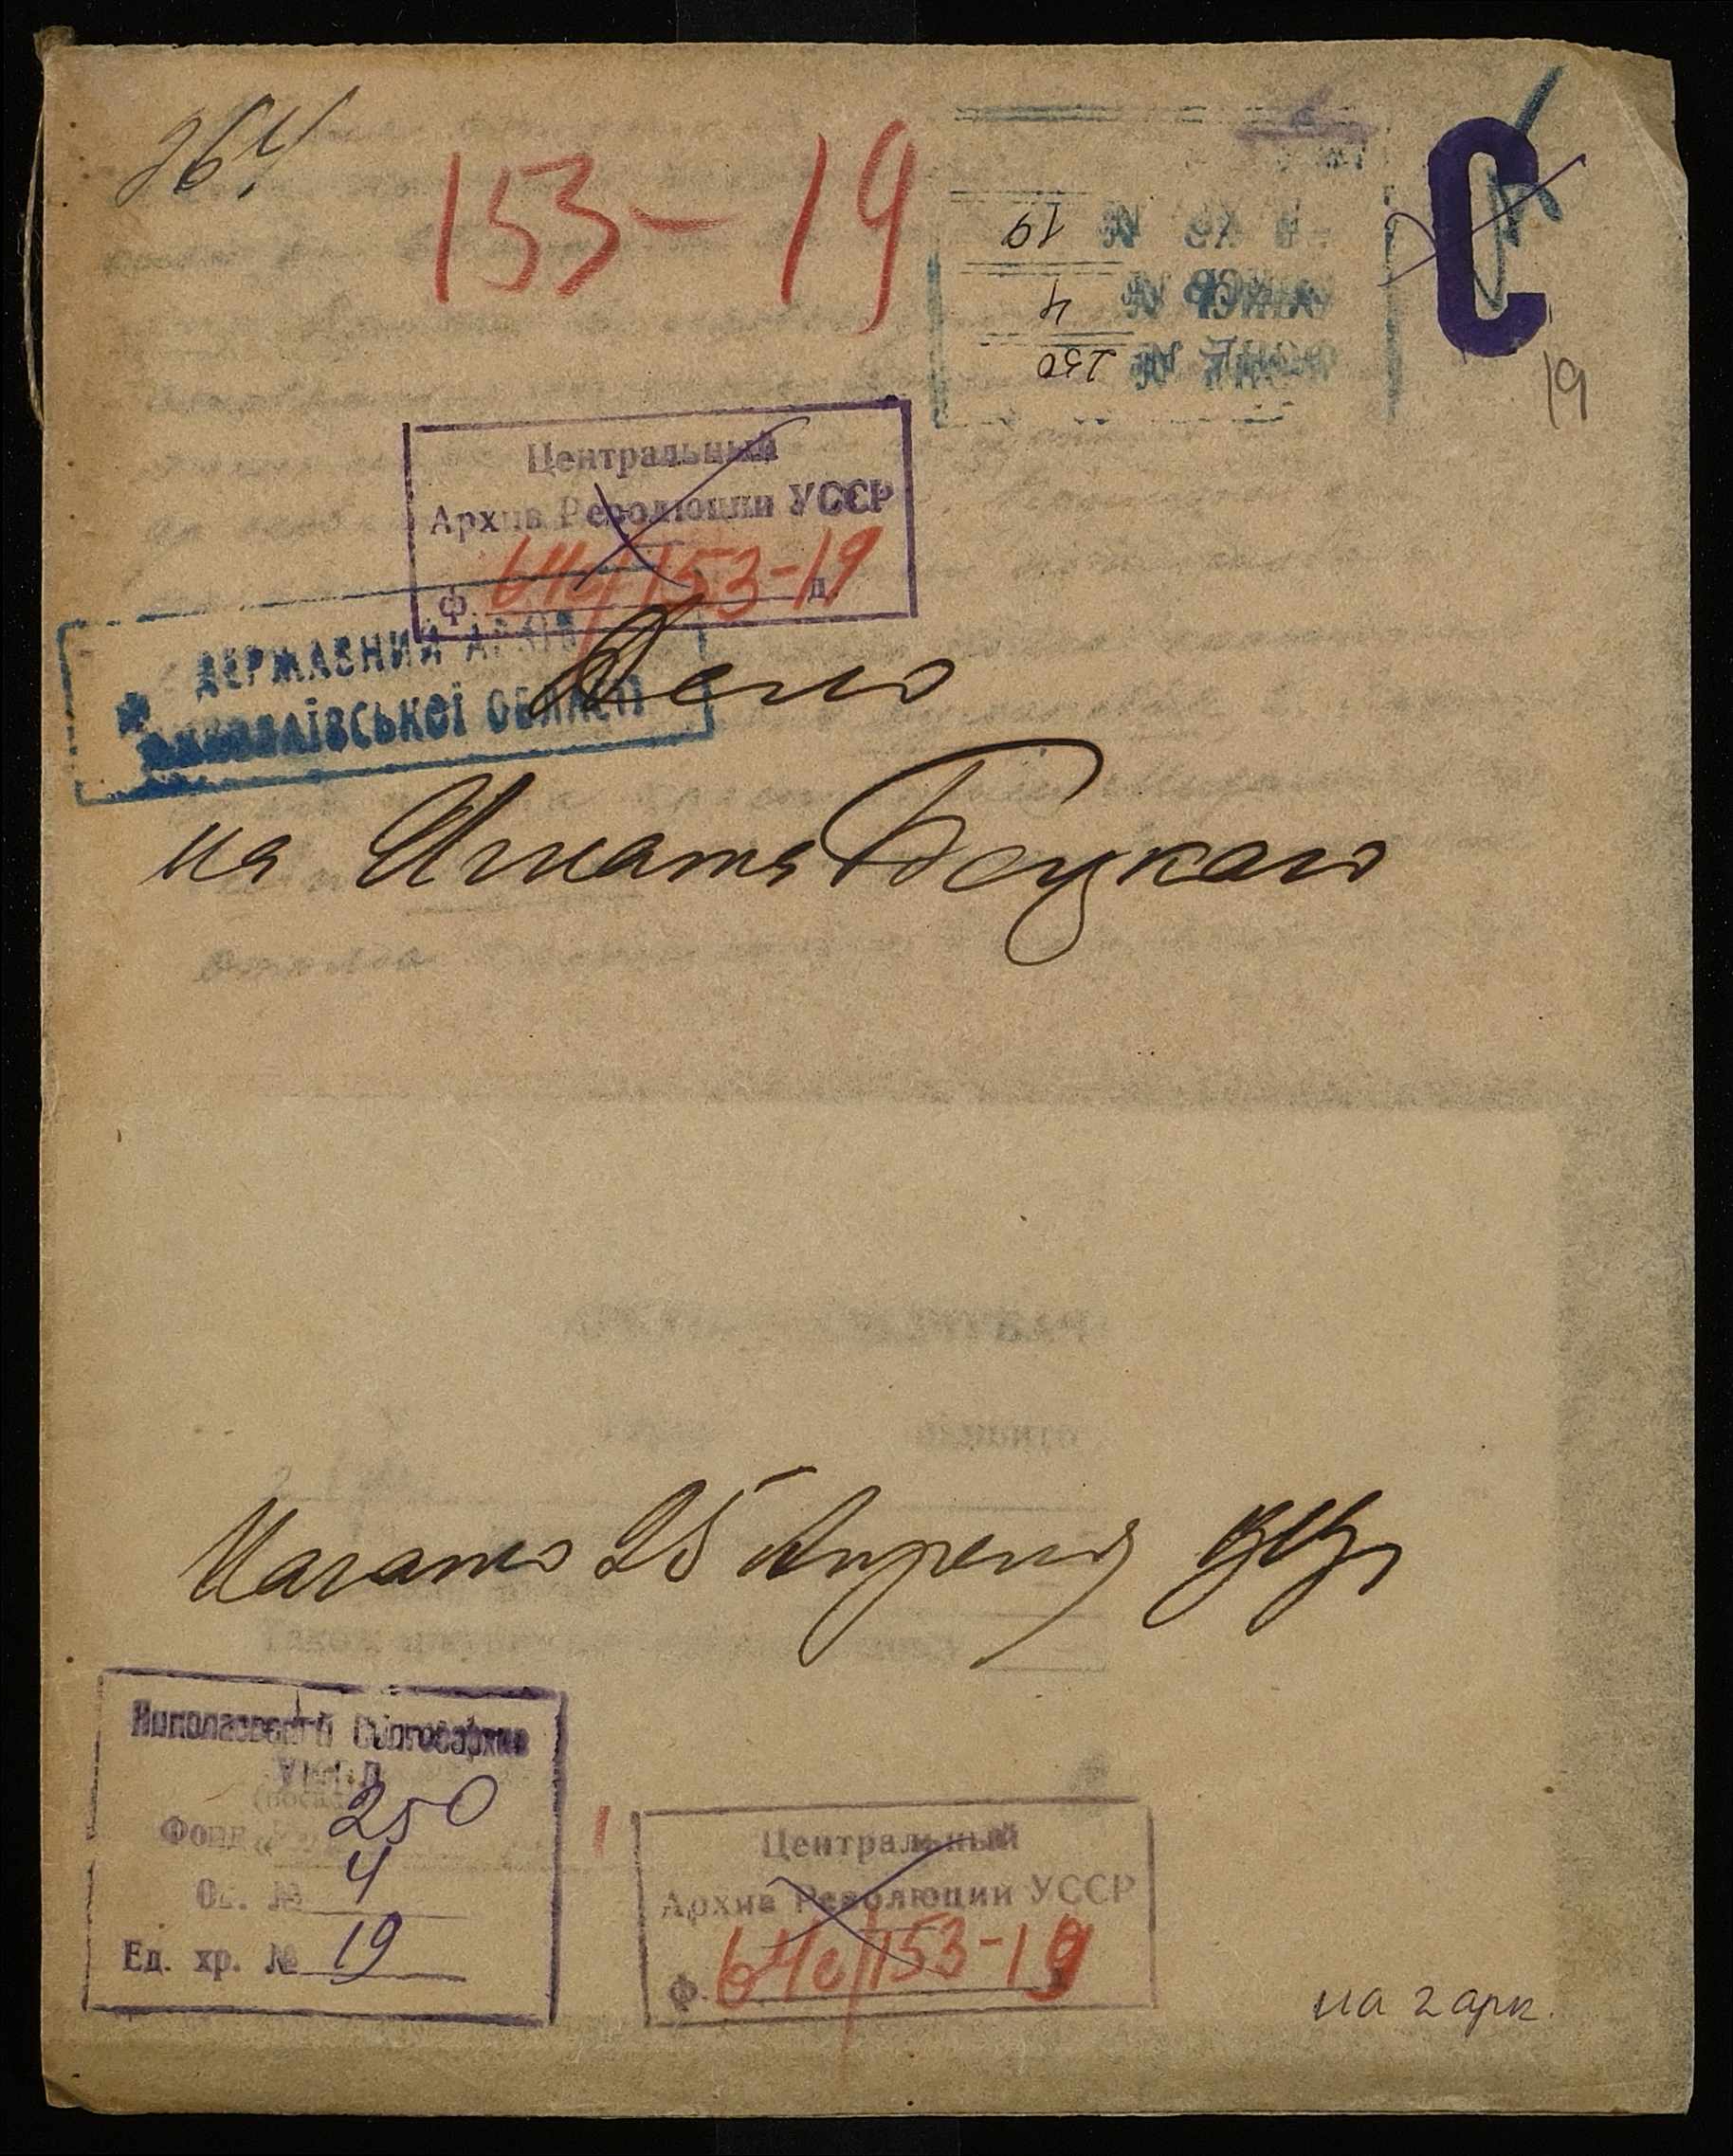 264
153-19
19
ФОНД № 250
ОПИСЬ № 4
ЕД. ХР. № 19
С
19
Центральный
Архив Революции УССР
ф. 64с/153-19 д
ДЕРЖАВНИЙ АРХІВ
МИКОЛАЇВСЬКОЇ ОБЛАСТІ
Дело
на Игната Боцкого
Начато 25 Апреля
Николаевский Облгосархив
Фонд 250
Оп. № 4
Ед. хр. № 19
Центральный
Архив Революции УССР
ф. 64с/153-19
на 2 арк.